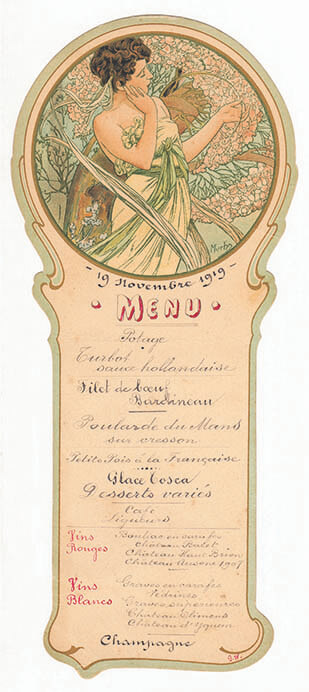 Mucha
- 19 Novembre 1919 -
• MENU •
Potage
Turbot
sauce hollandaise
Filet de bœuf
Poularde du Mans
sur cresson
Petits Pois à la Française
Glace Tosca
Desserts variés
Café
Liqueurs
Vins Rouges
en carafes
Château
Château Haut Brion
Château Ausone
Vins Blancs
Graves en carafes
Graves supérieures
Château Climens
Château d'Yquem
Champagne